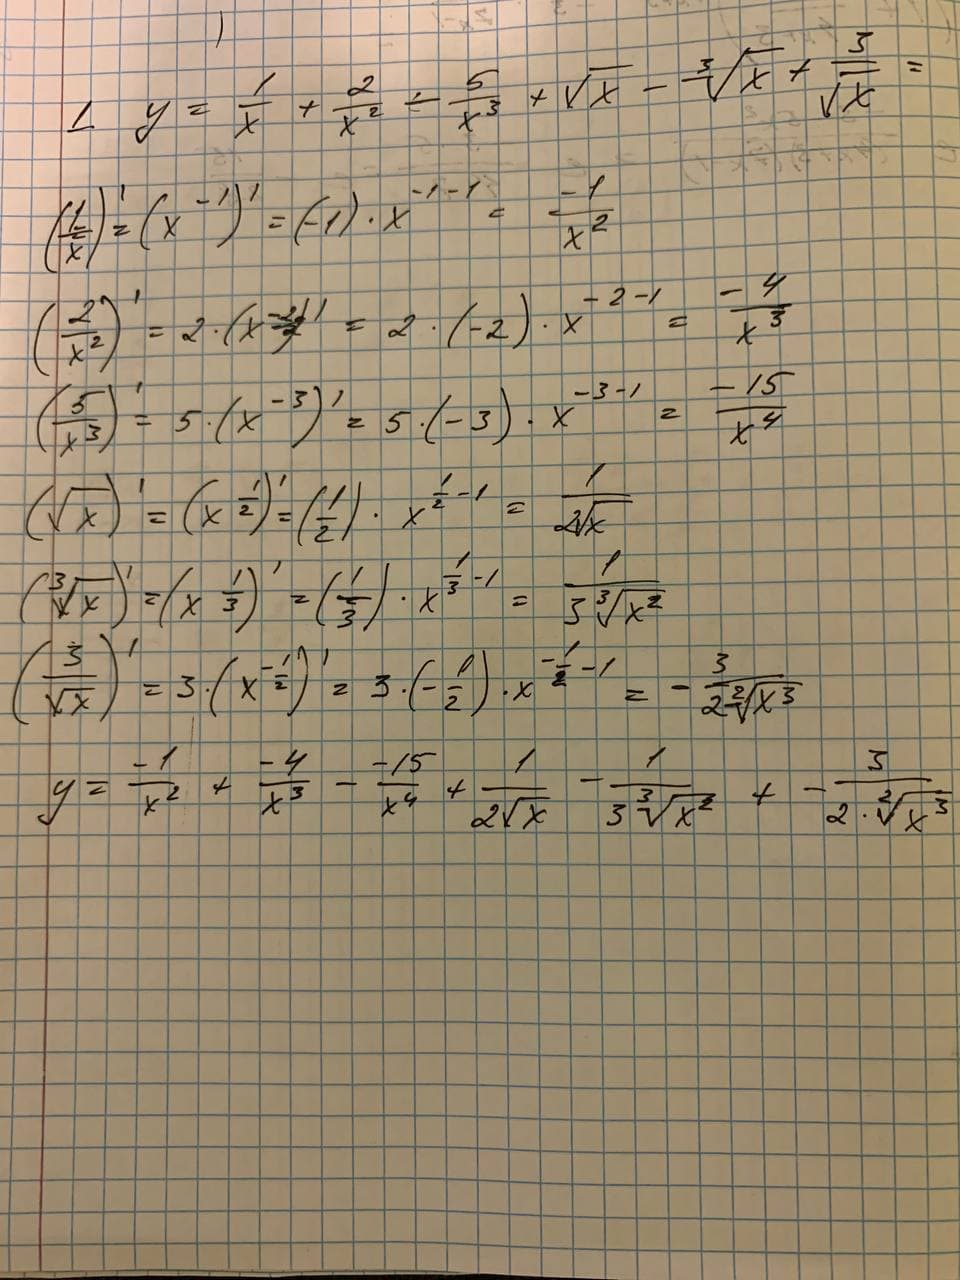 1 y = 1/x + 2/x² - 5/x³ + √x - ³√x + 3/√x =
(1/x)' = (x⁻¹)' = (-1) · x⁻¹⁻¹ = -1/x²
(2/x²)' = 2 · (x⁻²)' = 2 · (-2) · x⁻²⁻¹ = -4/x³
(5/x³)' = 5 · (x⁻³)' = 5 · (-3) · x⁻³⁻¹ = -15/x⁴
(√x)' = (x^(1/2))' = (1/2) · x^(1/2 - 1) = 1/(2√x)
(³√x)' = (x^(1/3))' = (1/3) · x^(1/3 - 1) = 1/(3 ³√x²)
(3/√x)' = 3 · (x^(-1/2))' = 3 · (-1/2) · x^(-1/2 - 1) = - 3/(2 ²√x³)
y = -1/x² + -4/x³ - -15/x⁴ + 1/(2√x) - 1/(3 ³√x²) + - 3/(2 · ²√x³)